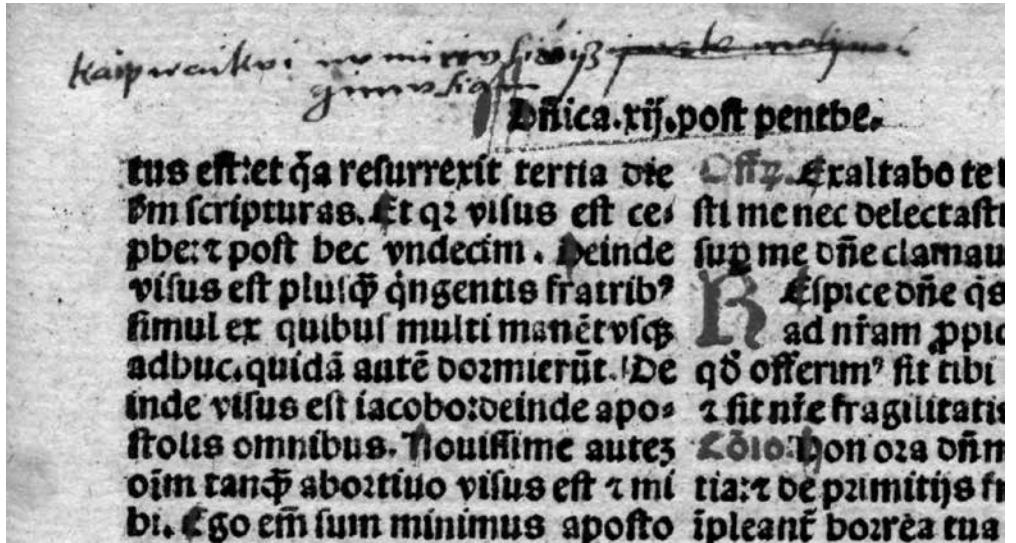 Dn̄ica.xij.post penthe.
tus est:et q̇a resurrexit tertia die
s̄m scripturas. Et qꝛ visus est ce⸗
phe:⁊ post hec vndecim. Deinde
visus est plusq̄ꝫ q̇ngentis fratribꝰ
simul ex quibus multi manēt vsqꝫ
adhuc.quidā autē dormierūt. De
inde visus est iacobo:deinde apo⸗
stolis omnibus. Nouissime auteꝫ
oīm tanq̄ꝫ abortiuo visus est ⁊ mi
hi. Ego em̄ sum minimus aposto
Exaltabo te
sti me nec delectasti
sup̱ me dn̄e clamau
REspice dn̄e q̄s
ad nr̄am ꝓpic
qd̄ offerimꝰ sit tibi
⁊ sit nr̄e fragilitatis
Cōio. Hon ora dn̄m
tia:⁊ de primitijs fr
īpleant̄ horrea tua